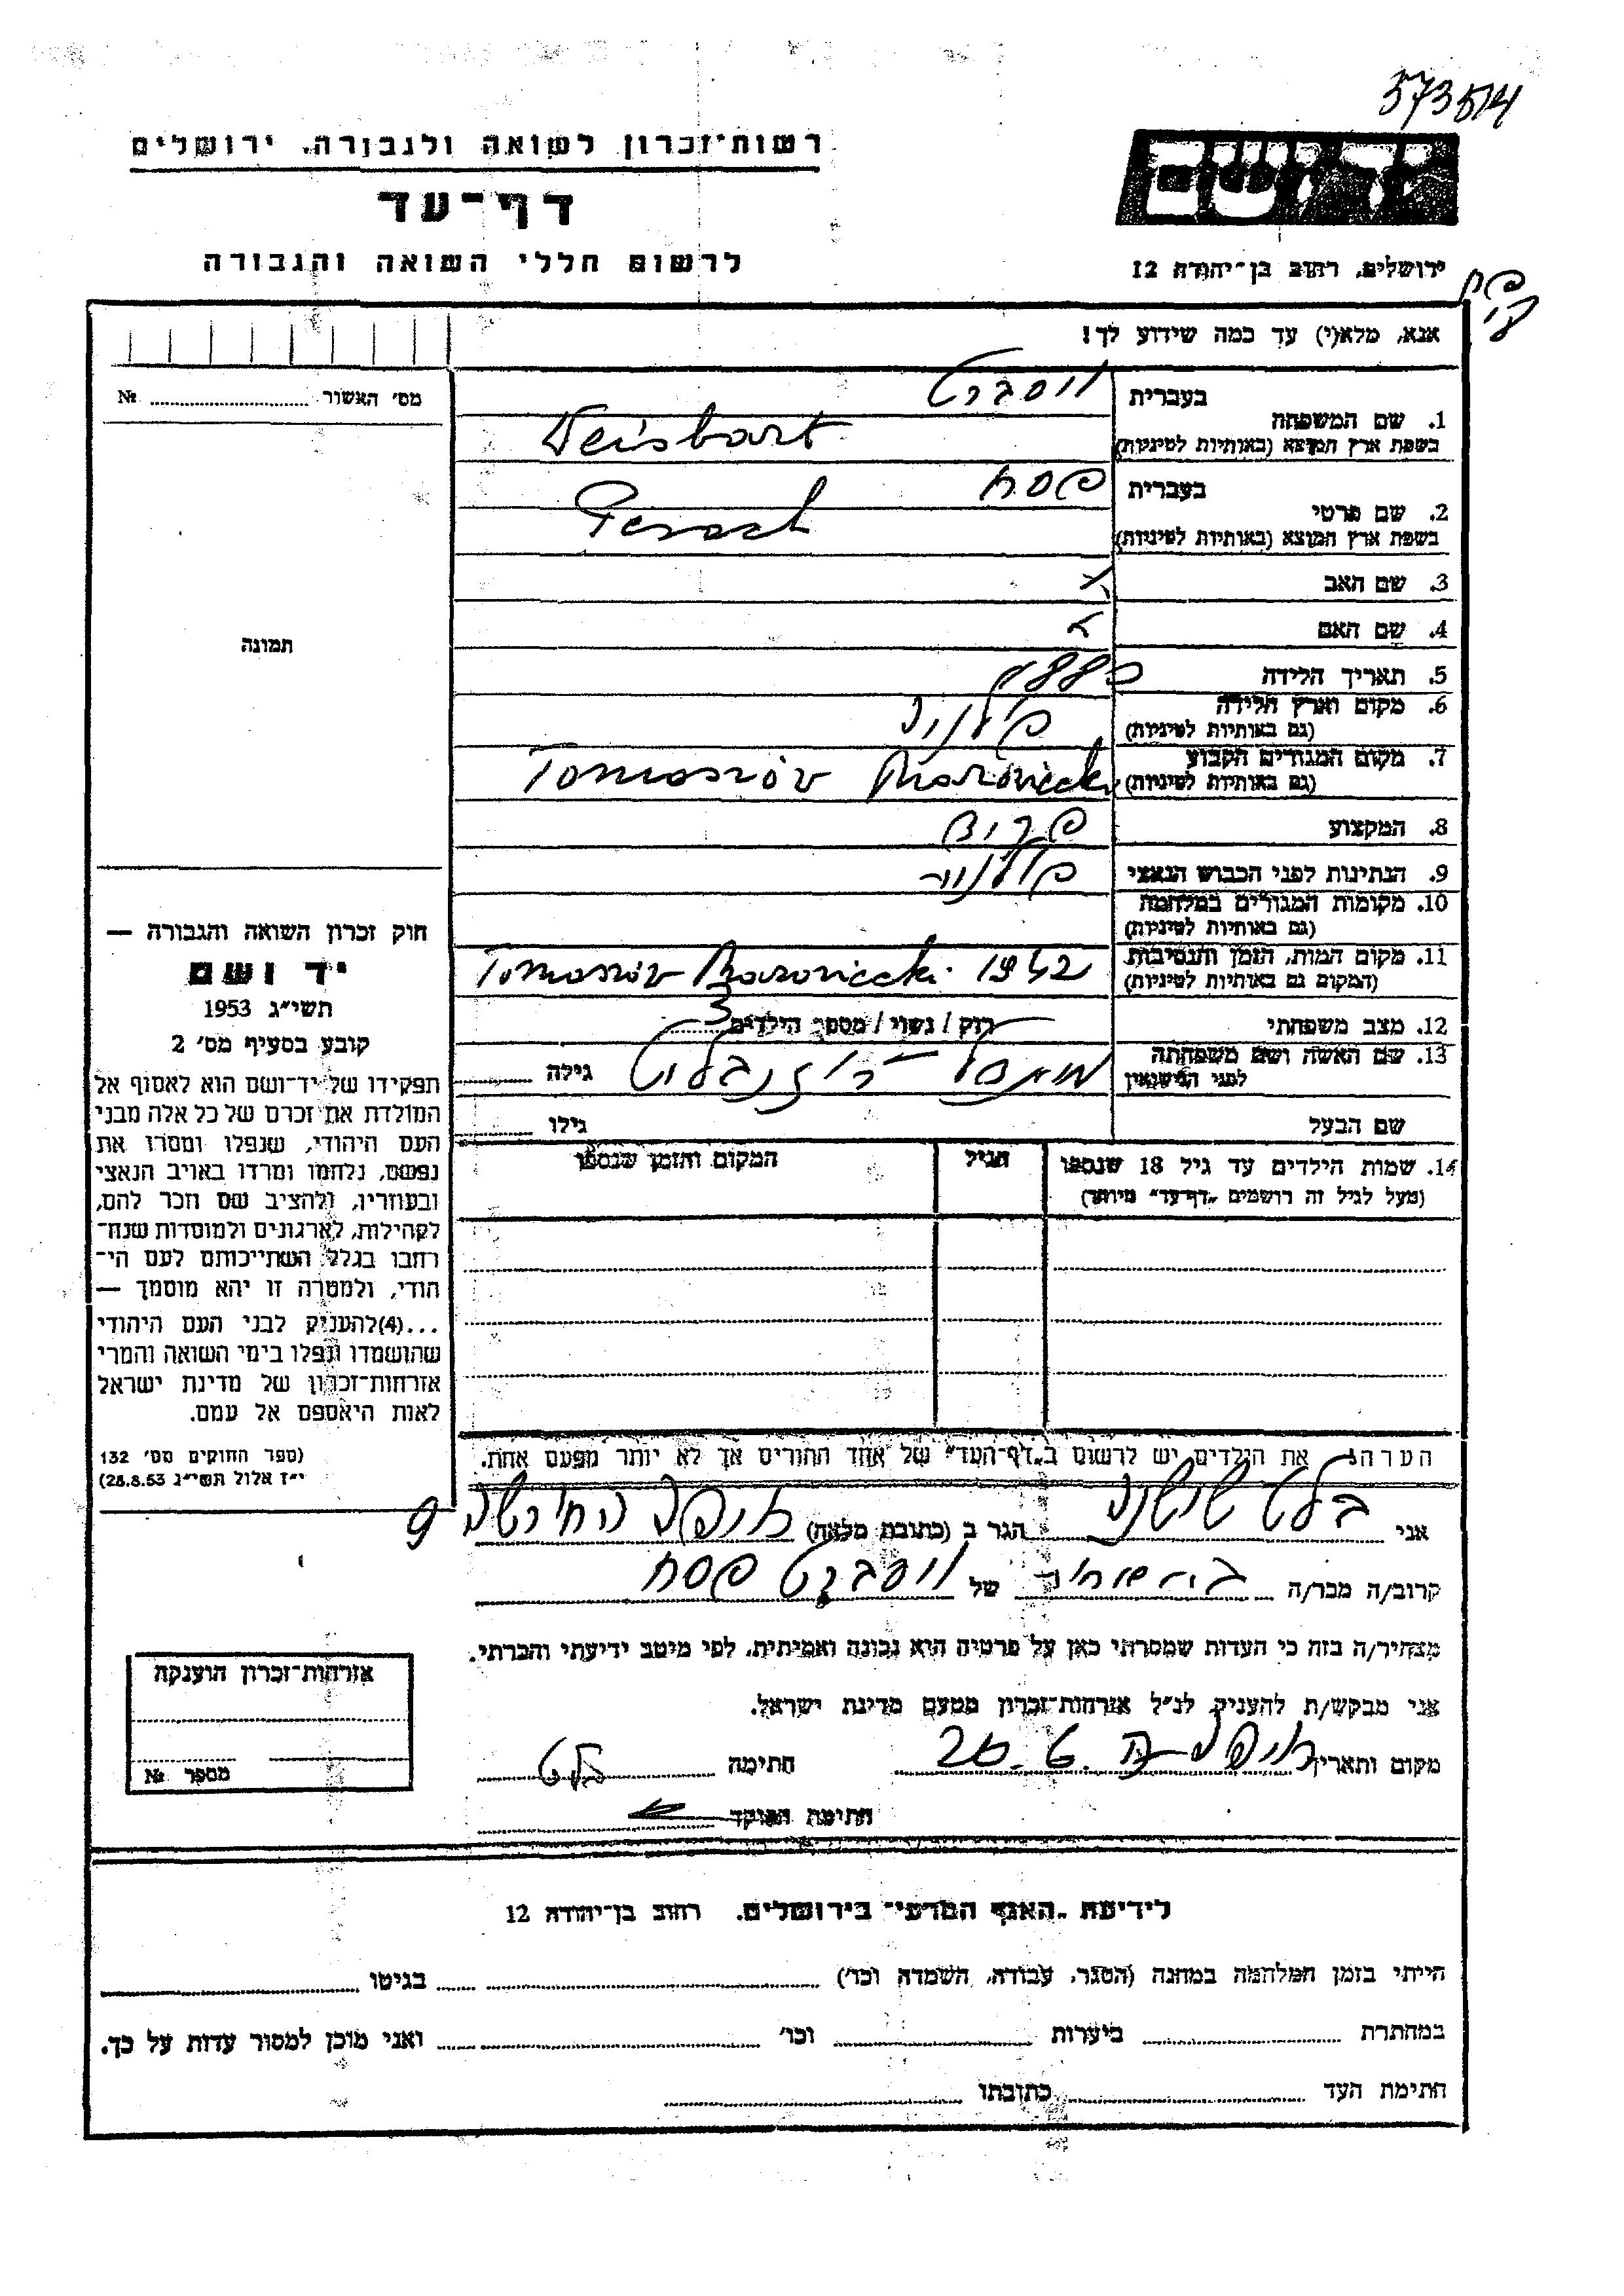 573514
רשות־זכרון לשואה ולגבורה, ירושלים
יד ושם
דף־עד
לרשום חללי השואה והגבורה
ירושלים, רחוב בן־יהודה 12
אנא, מלא(י) עד כמה שידוע לך!
מס' האשור № 
1. שם המשפחה
בעברית ויסברט
בשפת ארץ המוצא (באותיות לטיניות) Weisbart
2. שם פרטי
בעברית פסח
בשפת ארץ המוצא (באותיות לטיניות) Pesach
3. שם האב
4. שם האם
תמונה
5. תאריך הלידה
6. מקום וארץ הלידה
(גם באותיות לטיניות)
7. מקום המגורים הקבוע Tomaszów Mazowiecki
(גם באותיות לטיניות)
8. המקצוע
9. הנתינות לפני הכבוש הנאצי
10. מקומות המגורים במלחמה
(גם באותיות לטיניות)
11. מקום המות, הזמן והנסיבות Tomaszów Mazowiecki 1942
(המקום גם באותיות לטיניות)
12. מצב משפחתי רוק / נשוי / מספר הילדים 3
13. שם האשה ושם משפחתה
לפני הנישואין גילה
שם הבעל גילו
14. שמות הילדים עד גיל 18 שנספו הגיל המקום והזמן שנספו
(מעל לגיל זה רושמים „דף־עד" מיוחד)
חוק זכרון השואה והגבורה —
יד ושם
תשי"ג 1953
קובע בסעיף מס' 2
תפקידו של יד־ושם הוא לאסוף אל
המולדת את זכרם של כל אלה מבני
העם היהודי, שנפלו ומסרו את
נפשם, נלחמו ומרדו באויב הנאצי
ובעוזריו, ולהציב שם וזכר להם,
לקהילות, לארגונים ולמוסדות שנח־
רחבו בגלל השתייכותם לעם הי־
הודי, ולמטרה זו יהא מוסמך —
...(4)להעניק לבני העם היהודי
שהושמדו ונפלו בימי השואה והמרי
אזרחות־זכרון של מדינת ישראל
לאות היאספם אל עמם.
(ספר החוקים מס' 132
י"ז אלול תשי"ג 28.8.53)
הערה: את הילדים יש לרשום ב„דף־העד" של אחד ההורים אך לא יותר מפעם אחת.
אני בלט הגר ב (כתובת מלאה) חיפה 9
קרוב/ה מכר/ה של ויסברט פסח
מצהיר/ה בזה כי העדות שמסרתי כאן על פרטיה היא נכונה ואמיתית, לפי מיטב ידיעתי והכרתי.
אני מבקש/ת להעניק לנ"ל אזרחות־זכרון מטעם מדינת ישראל.
מקום ותאריך חתימה בלט
חתימת הפוקד
אזרחות־זכרון הוענקה
מספר №
לידיעת „האגף המדעי" בירושלים, רחוב בן־יהודה 12
הייתי בזמן המלחמה במחנה (הסגר, עבודה, השמדה וכו') בגיטו
במחתרת ביערות וכו' ואני מוכן למסור עדות על כך.
חתימת העד כתובתו